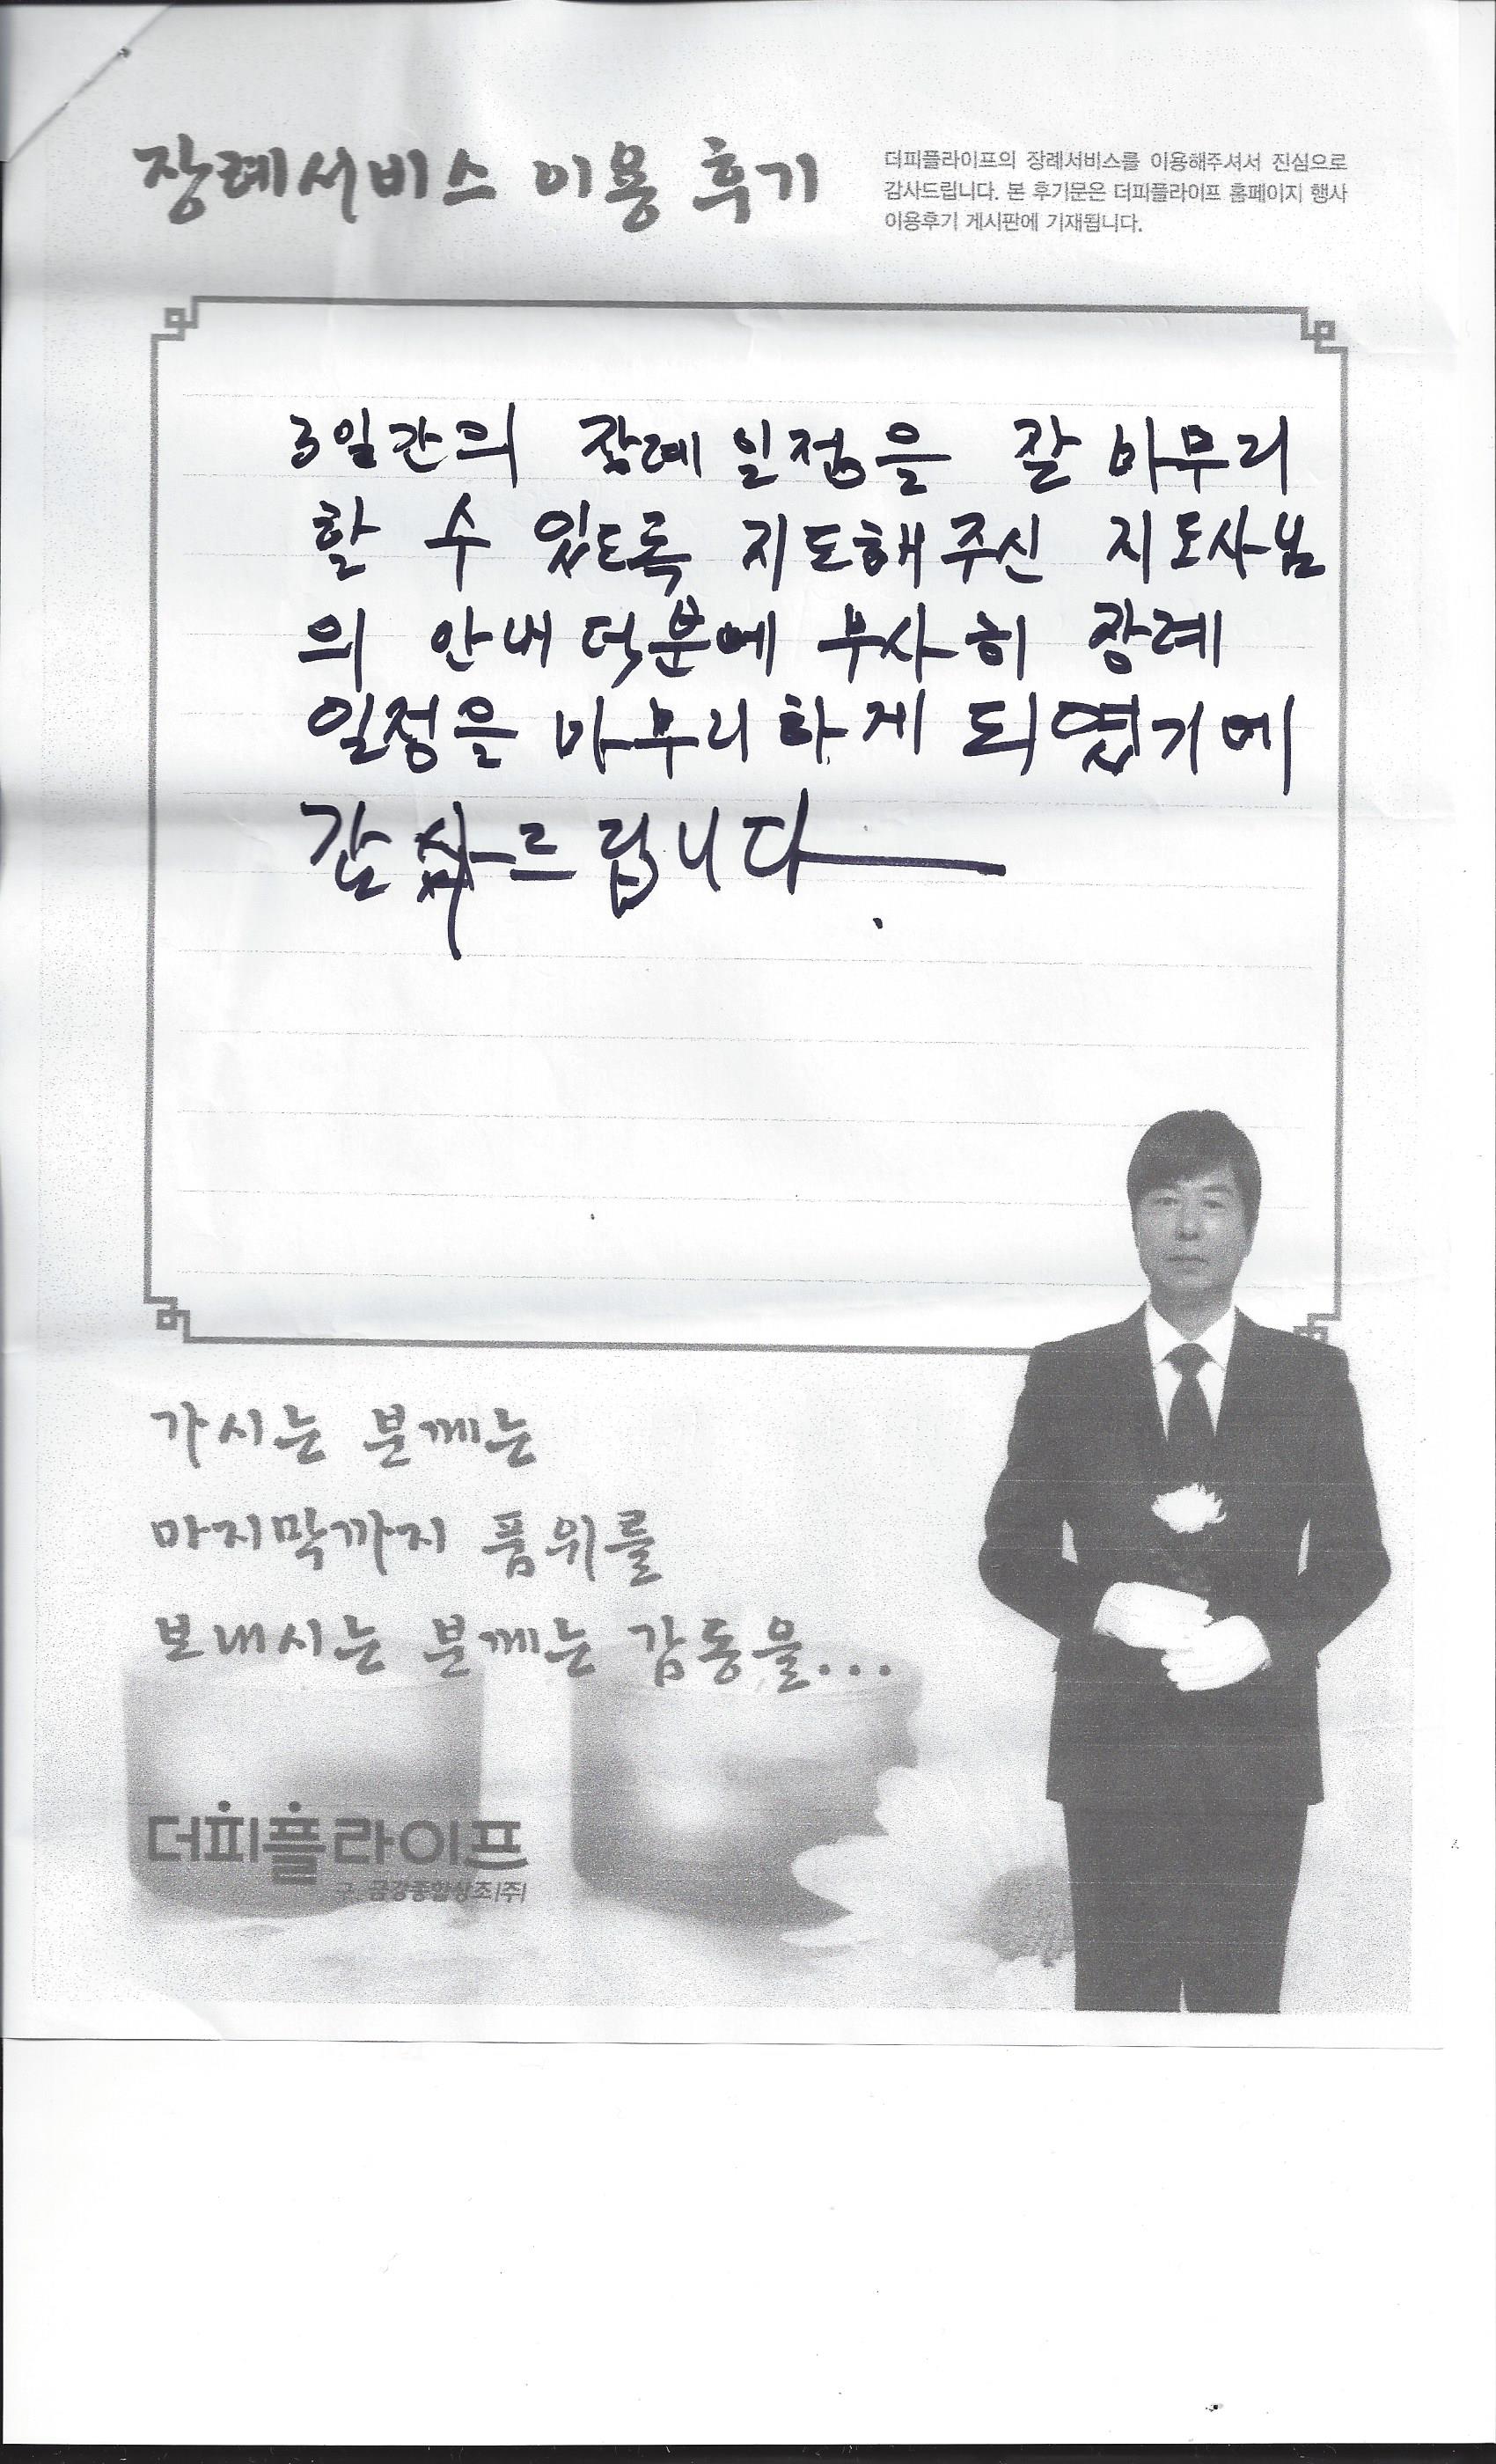 장례서비스 이용 후기
더피플라이프의 장례서비스를 이용해주셔서 진심으로
감사드립니다. 본 후기문은 더피플라이프 홈페이지 행사
이용후기 게시판에 기재됩니다.
3일간의 장례일정을 잘 마무리
할 수 있도록 지도해주신 지도사님
의 안내덕분에 무사히 장례
일정을 마무리하게 되엿기에
감사드립니다.
가시는 분께는
마지막까지 품위를
보내시는 분께는 감동을...
더피플라이프
구. 금강종합상조(주)